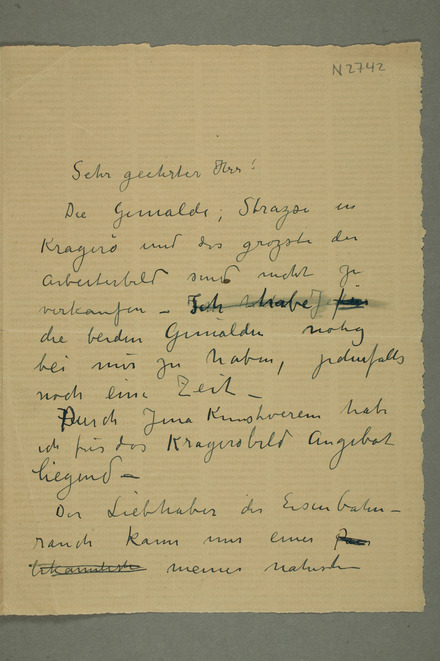 N 2742
Sehr geehrter Herr!
Die Gemälde; Strazse in
Kragerö und das grozste der
Arbeiterbild sind nicht zu
verkaufen – Ich habe
die beiden Gemälden nötig
bei mir zu haben, jedenfalls
noch eine Zeit –
Durch Jena Kunstverein hab
ich für das Krageröbild Angebot
liegend –
Der Liebhaber des Eisenbahn–
rauch kann nur einer
meines